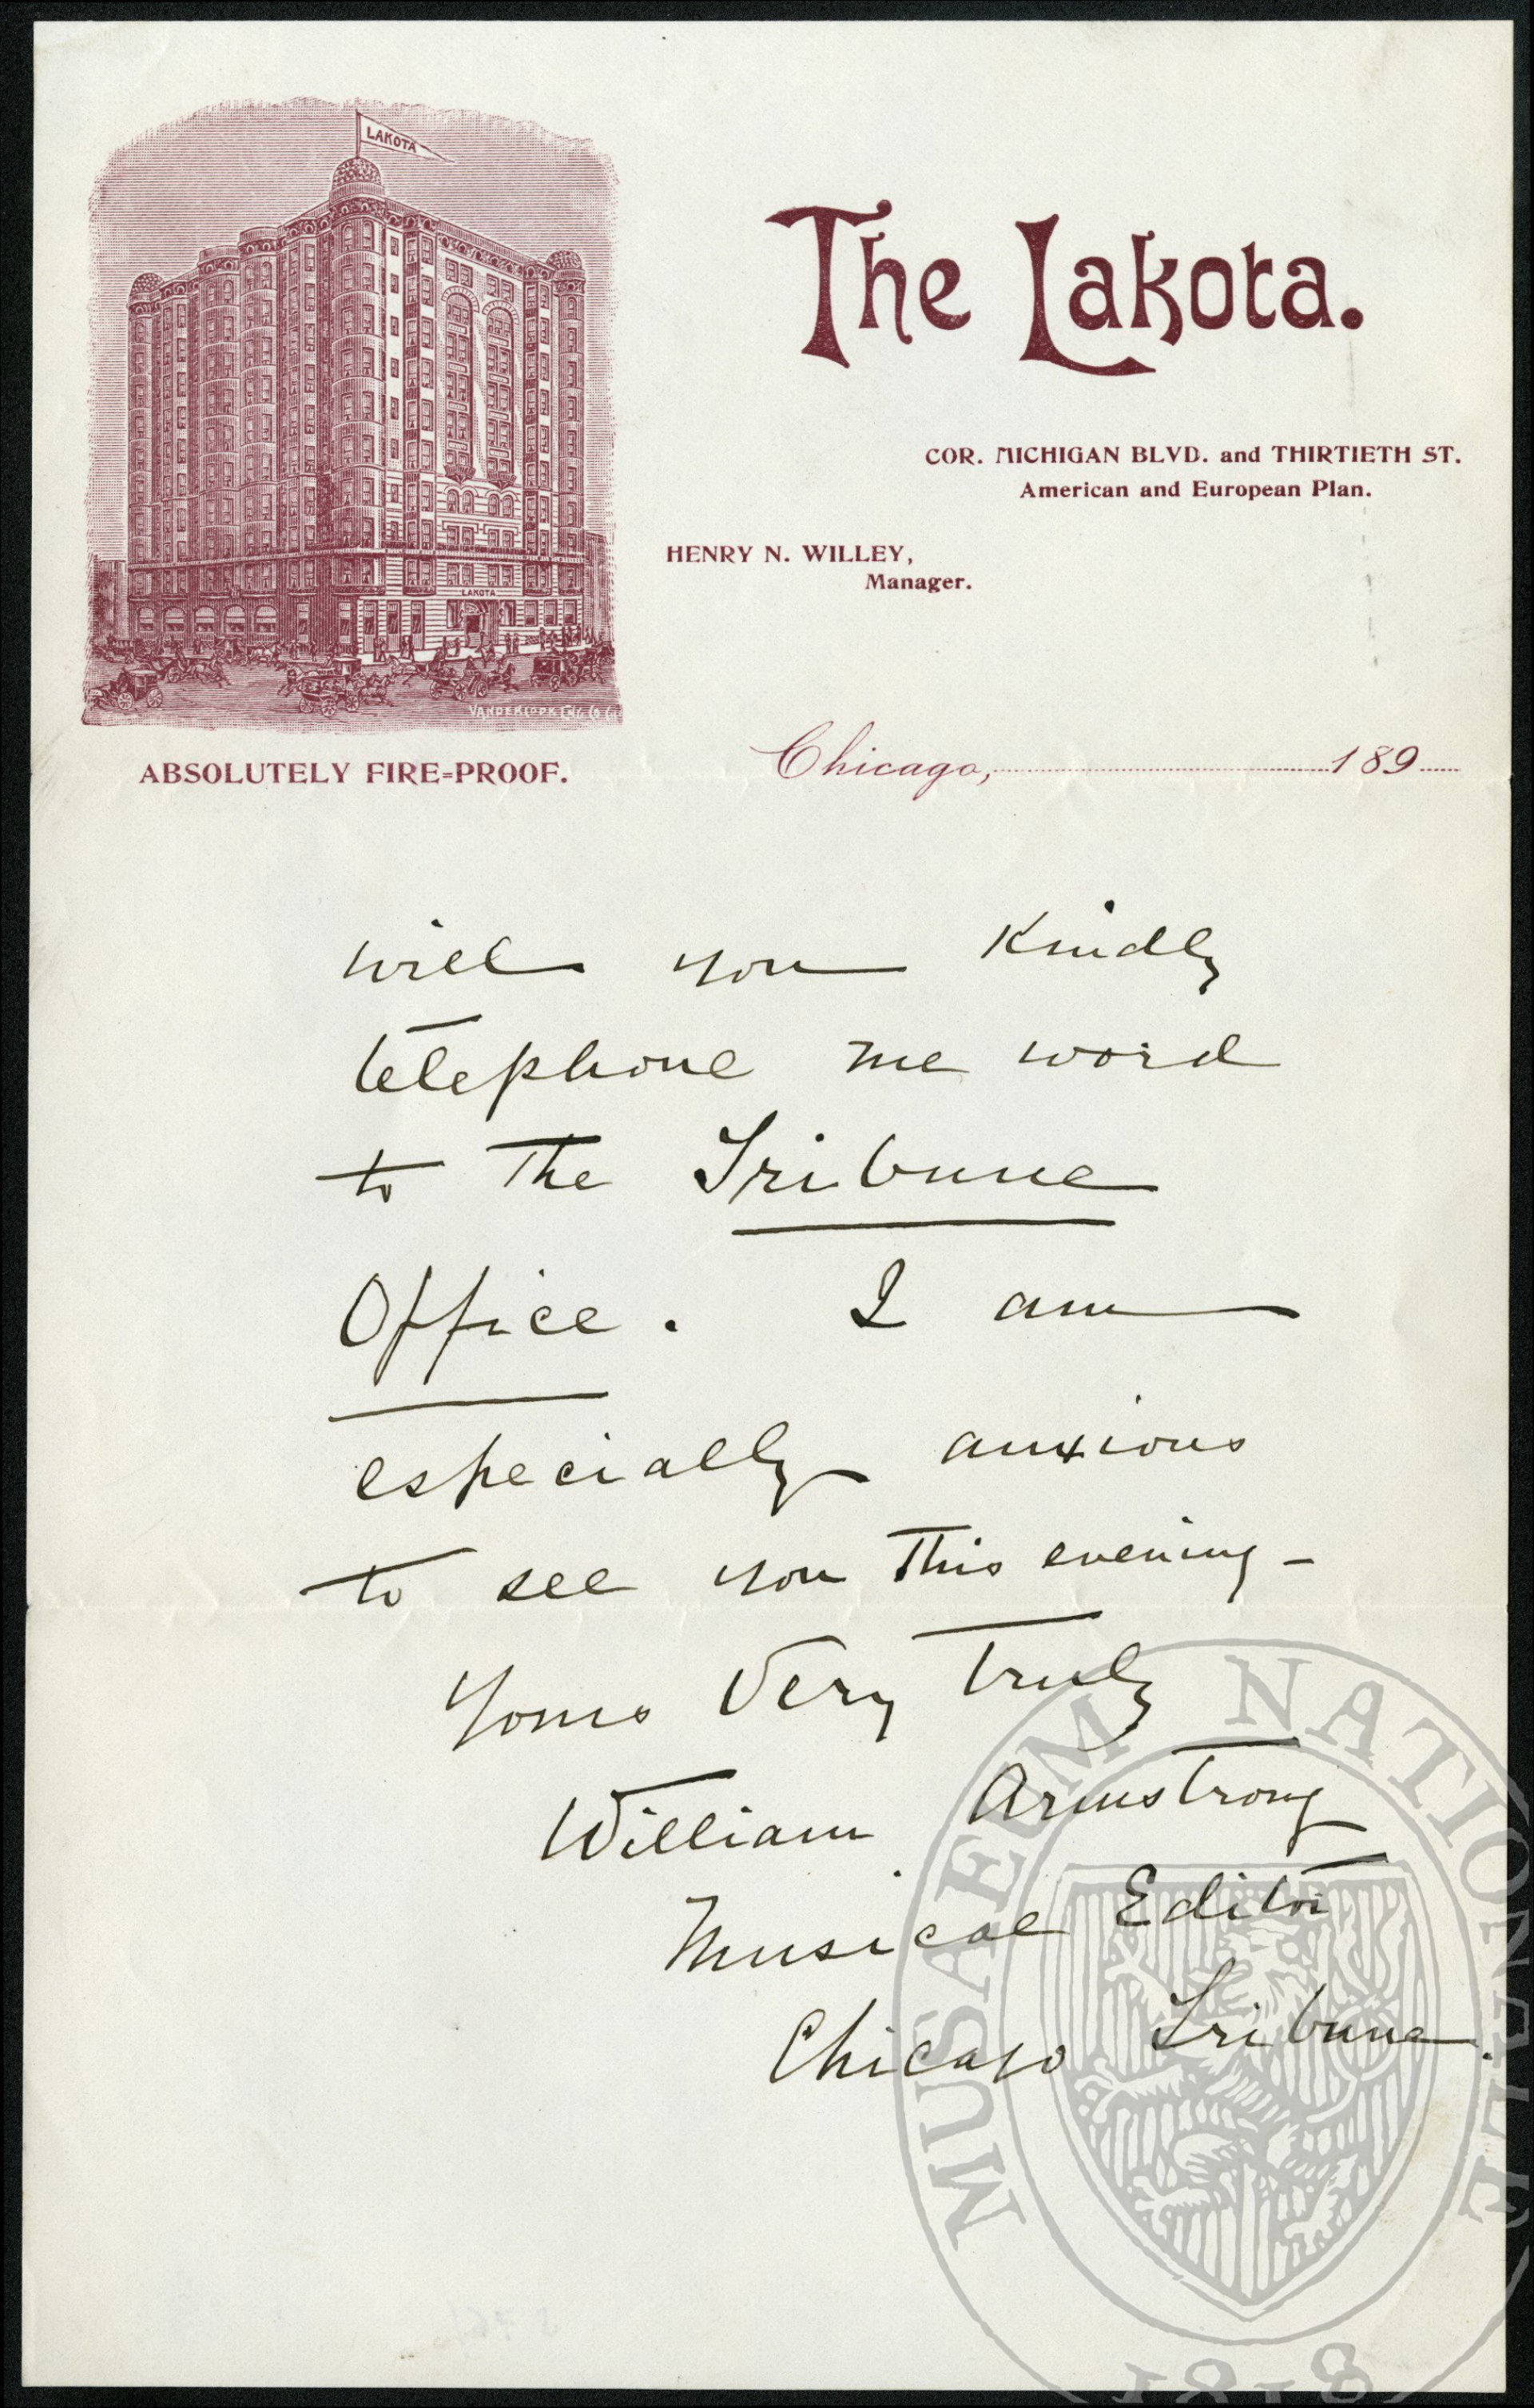 LAKOTA
The Lakota.
COR. MICHIGAN BLVD. and THIRTIETH ST.
American and European Plan.
HENRY N. WILLEY,
Manager.
LAKOTA
ABSOLUTELY FIRE=PROOF.
Chicago, 189
will you Kindly
telephone me word
to The Tribune
Office. I am
especially anxious
to see you This evening -
Yours Very truly
William Armstrong
Musical Editor
Chicago Tribune.
MUSAEUM NATIONALE
1818